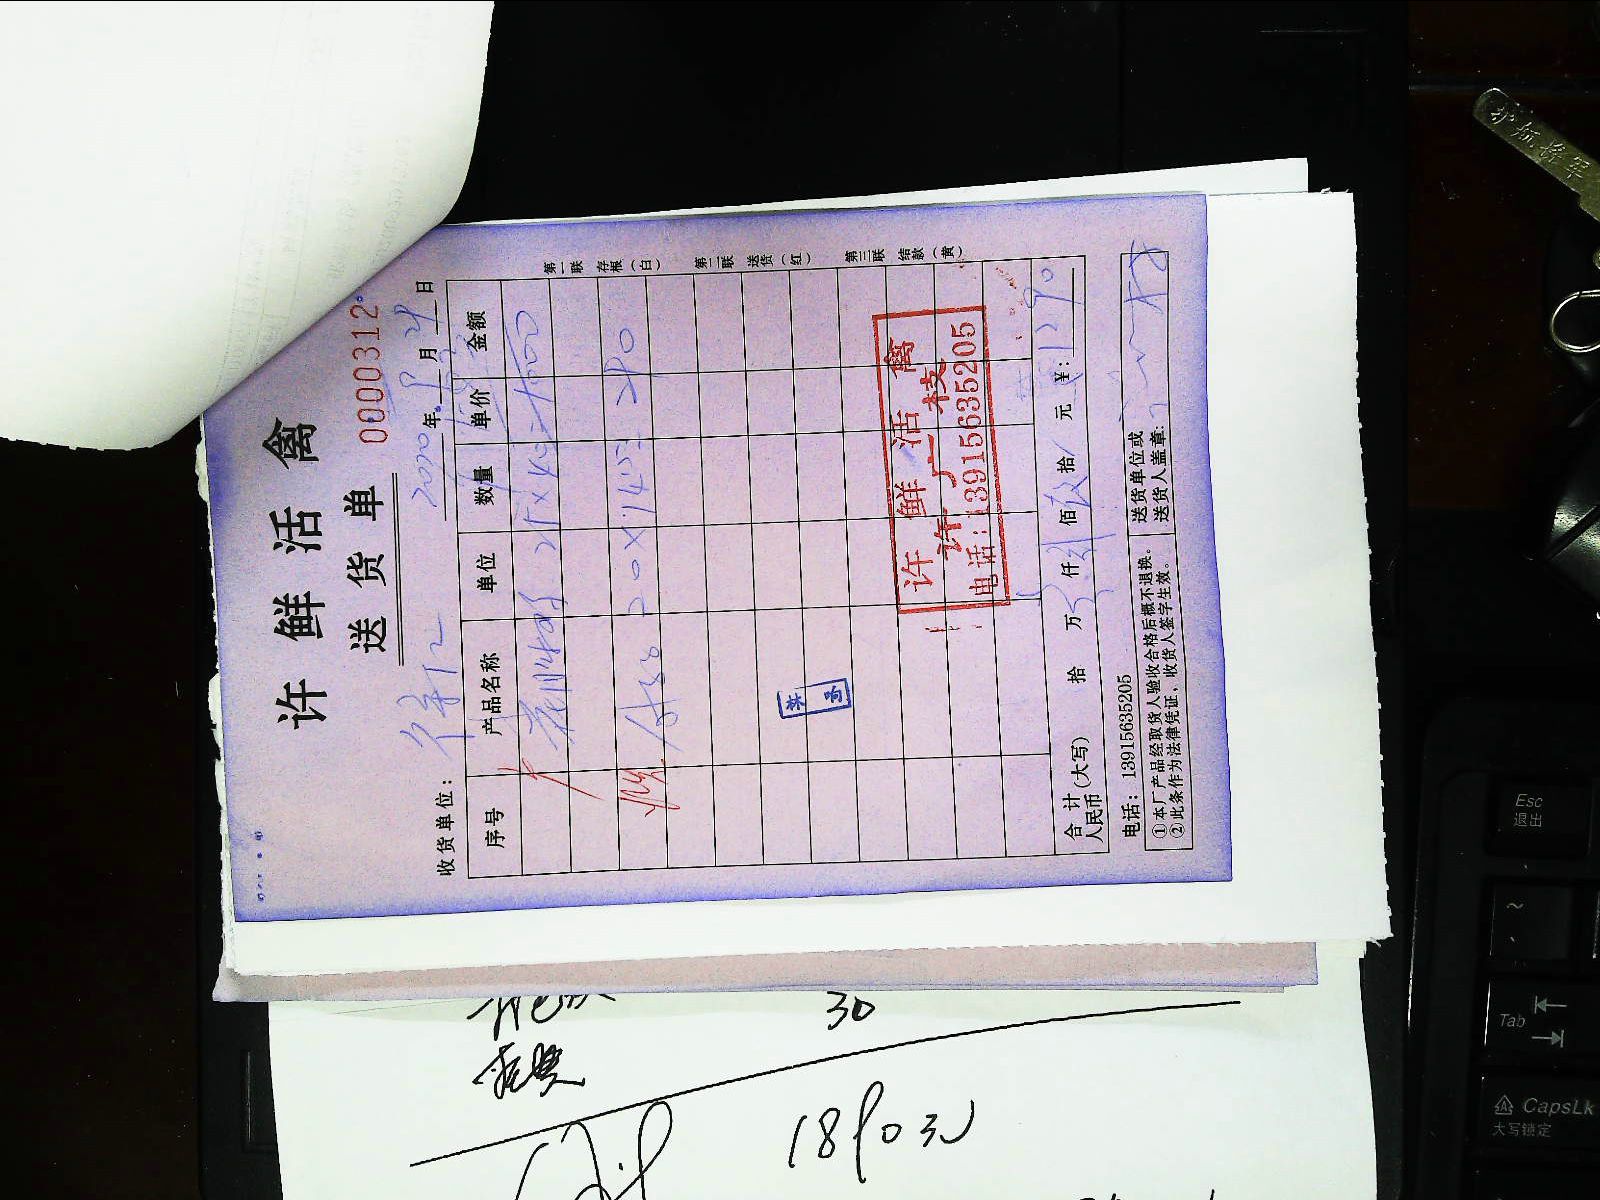 许鲜活禽
送货单
0000312
收货单位：
2020年 月 日
序号 产品名称 单位 数量 单价 金额
25×40=1000
20×14.5=290
第一联 存根（白）
第二联 送货（红）
第三联 结款（黄）
许鲜活禽
许广枝
电话：13915635205
合计（大写）
人民币
拾 万 仟 佰 拾 元 ￥：1290
电话：13915635205
①本厂产品经取货人验收合格后概不退换。
②此条作为法律凭证，收货人签字生效。
送货单位或
送货人盖章：
30
1890元
护航将军
Esc
退出
~
Tab
CapsLk
大写锁定